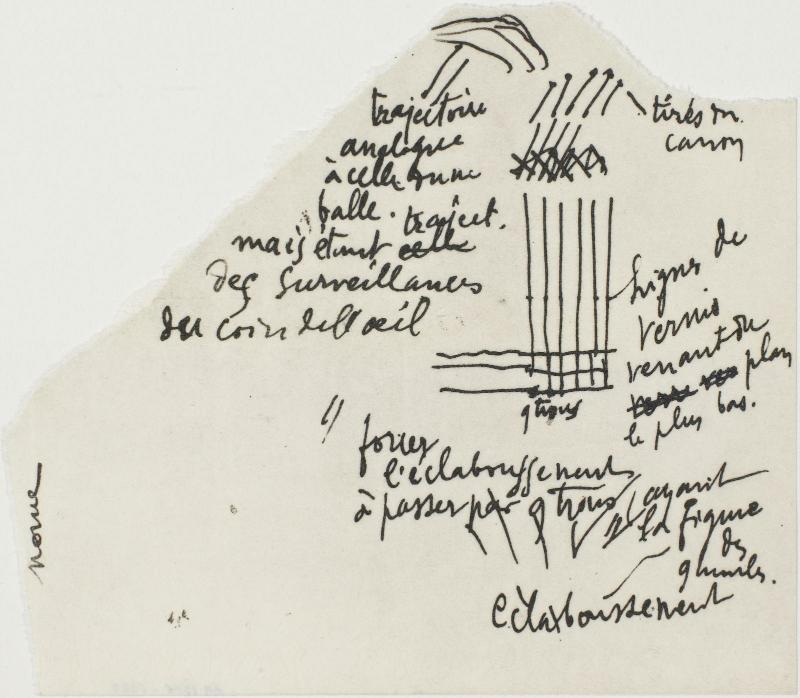 trajectoire
analogue
à celle d'une
balle. traject.
mais étant celle
des surveillances
du coin de l'œil
tirés du
canon
Lignes de
vernis
venant du
plan
le plus bas.
9 trous
forcer
l'éclaboussement
à passer par 9 trous
ayant
la figure
des
9 moules.
éclaboussement